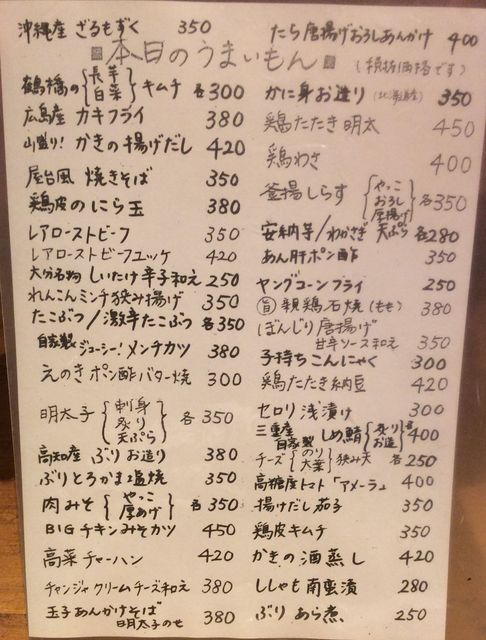 沖縄産 ざるもずく 350
たら唐揚げおろしあんかけ 400
本日のうまいもん
(税抜価格です)
鶴橋の{長芋 白菜}キムチ 各300
広島産 カキフライ 380
山盛り! かきの揚げだし 420
屋台風 焼きそば 350
鶏皮のにら玉 380
レアローストビーフ 350
レアローストビーフユッケ 420
大分名物 しいたけ辛子和え 250
れんこんミンチ狭み揚げ 350
たこぶつ/激辛たこぶつ 各350
自家製 ジューシー!メンチカツ 380
えのきポン酢バター焼 300
明太子{刺身 炙り 天ぷら}各350
高知産 ぶりお造り 380
ぶりとろかま塩焼 350
肉みそ{やっこ 厚あげ}各350
BIGチキンみそカツ 450
高菜チャーハン 420
チャンジャクリームチーズ和え 380
玉子あんかけそば 明太子のせ 380
かに身お造り 350
鶏たたき明太 450
鶏わさ 400
釜揚しらす{やっこ おろし 厚揚げ}各350
安納芋/わかさぎ 天ぷら 各280
あん肝ポン酢 350
ヤングコーンフライ 250
旨 親鶏石焼(もも) 380
ぼんじり唐揚げ
甘辛ソース和え 350
子持ちこんにゃく 300
鶏たたき納豆 420
セロリ浅漬け 300
三重産 自家製 しめ鯖{炙り お造}各400
チーズ{のり 大葉}狭み天 各250
高糖度トマト「アメーラ」 400
揚げだし茄子 350
鶏皮キムチ 350
かきの酒蒸し 420
ししゃも南蛮漬 280
ぶりあら煮 250